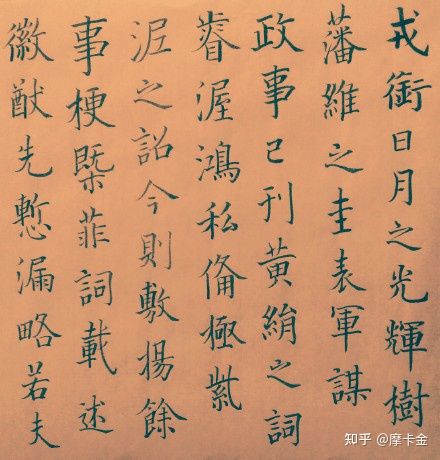 戎衝日月之光輝樹
藩維之圭表軍謀
政事已刊黃絹之詞
睿渥鴻私俻極紫
泥之詔今則敷揚餘
事梗槩菲詞載述
徽猷先慙漏略若夫
知乎 @摩卡金